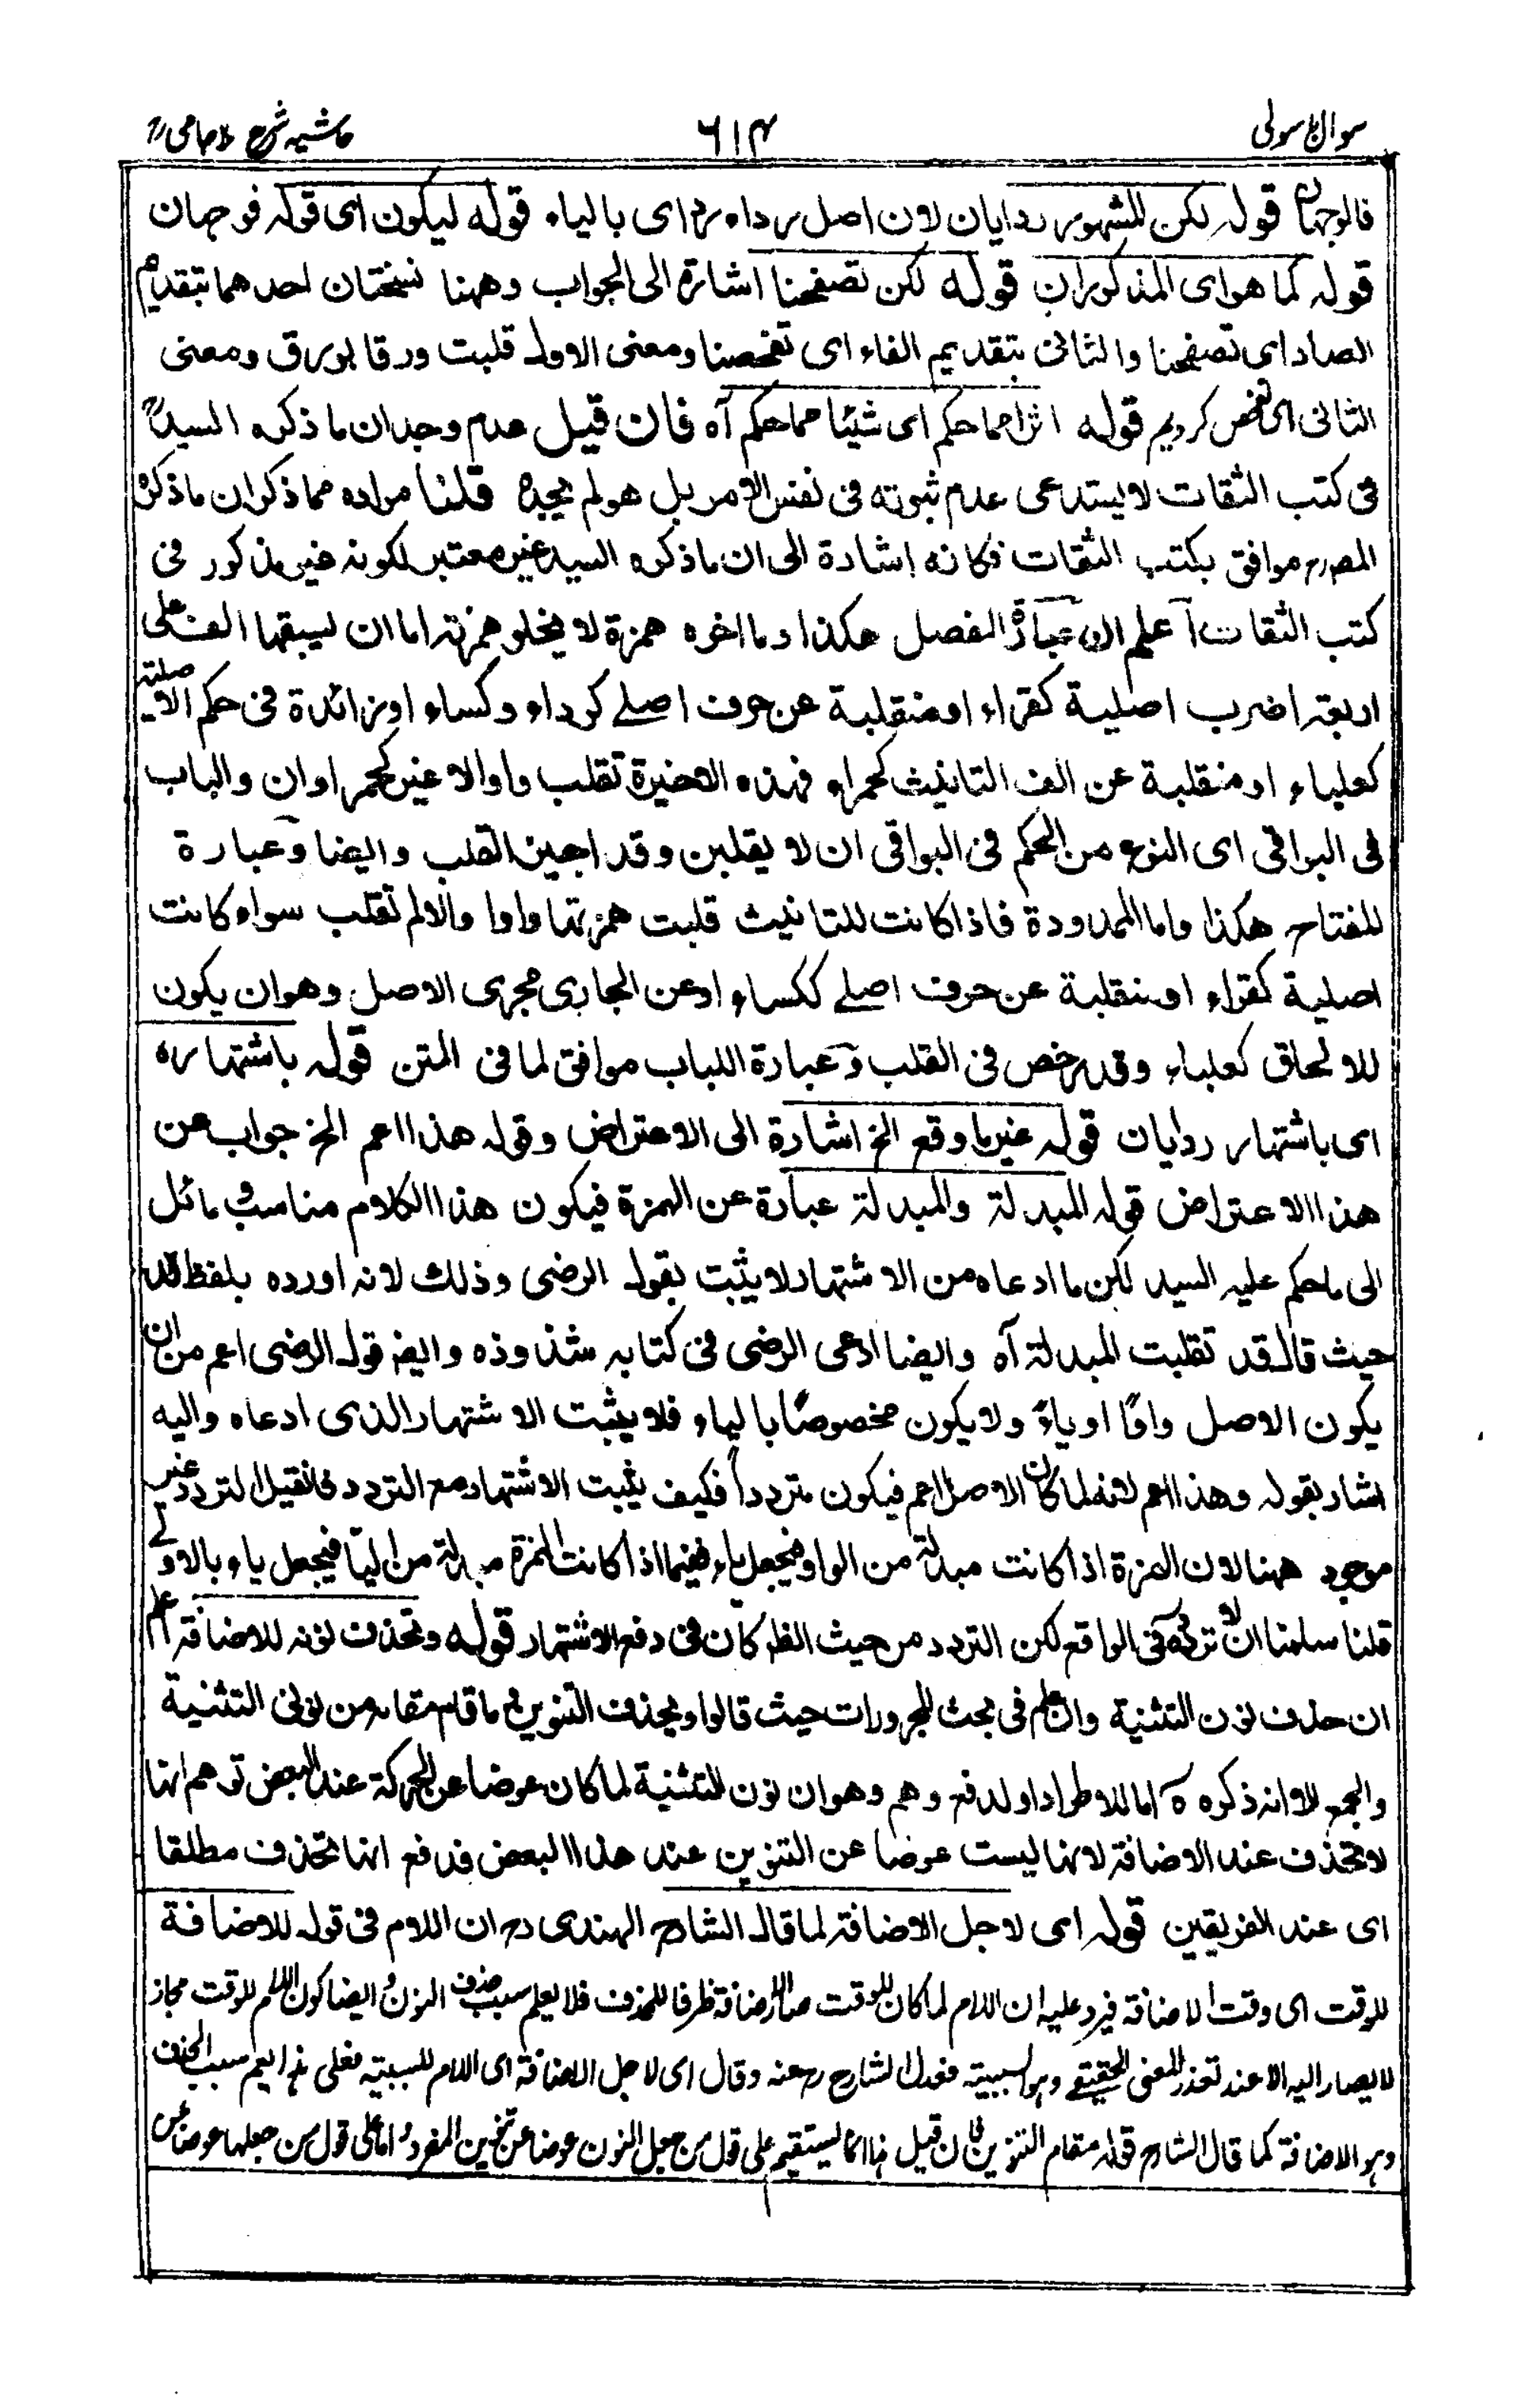 سوال باسولی ۶۱۴ حاشیہ شرح ملا جامی
فالوجهان قوله لكن المشهور ردايان لان اصل رداء رداى بالياء قوله ليكون اى قوله فوجهان
قوله كما هو اى المذكوران قوله لكن تصفحنا اشارة الى الجواب وههنا نسختان احدهما بتقديم
الصاد اى تصفحنا والثانى بتقديم الفاء اى تفحصنا ومعنى الاول قلبت ورقا بورق ومعنى
الثانى اى تفحص كرديم قوله اثرا مما حكم اى شيئا مما حكم آه فان قيل عدم وجدان ما ذكره السيد
فى كتب الثقات لا يستدعى عدم ثبوته فى نفس الامر بل هو لم يجده قلنا مراده مما ذكر ان ما ذكره
المصرح موافق بكتب الثقات فكانه اشارة الى ان ما ذكره السيد غير معتبر لكونه غير مذكور فى
كتب الثقات اعلم ان عبارة المفصل هكذا وما اخره همزة لا يخلو همزته اما ان يسبقها الف على
اربعة اضرب اصلية كقراء او منقلبة عن حرف اصلے كرداء وكساء او زائدة فى حكم الاصلية
كعلباء او منقلبة عن الف التانيث كحمراء فهذه الاخيرة تقلب واوا لا غير كحمراوان والباب
فى البواقى اى النوع من الحكم فى البواقى ان لا يقلبن وقد اجيز القلب وايضا وعبارة
المفتاح هكذا واما الممدودة فاذا كانت للتانيث قلبت همزتها واوا والا لم تقلب سواء كانت
اصلية كقراء او منقلبة عن حرف اصلے ككساء او عن الجارى مجرى الاصل وهو ان يكون
للالحاق كعلباء وقد رخص فى القلب وعبارة اللباب موافق لما فى المتن قوله باشتهاره
اى باشتهار ردايان قوله غير ما وقع الخ اشارة الى الاعتراض وقوله هذا اعم الخ جواب عن
هذا الاعتراض قوله المبدلة والمبدلة عبارة عن الهمزة فيكون هذا الكلام مناسب و مائل
الى ما حكم عليه السيد لكن ما ادعاه من الاشتهار لا يثبت بقول الرضى وذلك لانه اورده بلفظ قد
حيث قال قد تقلبت المبدلة آه وايضا ادعى الرضى فى كتابه شذوذه وايضا قول الرضى اعم من ان
يكون الاصل واوًا او ياءً ولا يكون مخصوصًا بالياء فلا يثبت الاشتهار الذى ادعاه واليه
اشار بقوله وهذا اعم لانه لما كان الاصل اعم فيكون مترددا فكيف يثبت الاشتهار مع التردد فان قيل التردد غير
موجود ههنا لان الهمزة اذا كانت مبدلة من الواو فيجعل ياء ففيما اذا كانت الهمزة مبدلة من اليا فيجعل ياء بالاولے
قلنا سلمنا ان لا تردد فى الواقع لكن التردد من حيث الظ كان فى دفع الاشتهار قوله وتحذف نونه للاضافة اعلم
ان حذف نون التثنية وان علم فى بحث المجرورات حيث قالوا ويحذف التنوين وما قام مقامه من نونى التثنية
والجمع الا انه ذكره اما للاطراد او لدفع وهم وهو ان نون التثنية لما كان عوضا عن الحركة عند البعض توهم انها
لا تحذف عند الاضافة لانها ليست عوضا عن التنوين عند هذا البعض فدفع انها تحذف مطلقا
اى عند الفريقين قوله اى لاجل الاضافة لما قال الشارح الهندى رح ان اللام فى قوله للاضافة
للوقت اى وقت الاضافة فيرد عليه ان اللام لما كان للوقت صار الاضافة ظرفا للحذف فلا يعلم سبب حذف النون وايضا كون اللام للوقت مجاز
لا يصار اليه الا عند تعذر المعنى الحقيقے وهو السببية فعدل الشارح رح عنه وقال اى لاجل الاضافة اى اللام للسببية فعلى هذا يعم سبب الحذف
وهو الاضافة كما قال الشارح قوله مقام التنوين فان قيل هذا انما يستقيم على قول من جعل النون عوضا عن تنوين المفرد اما على قول من جعلها عوضا عن